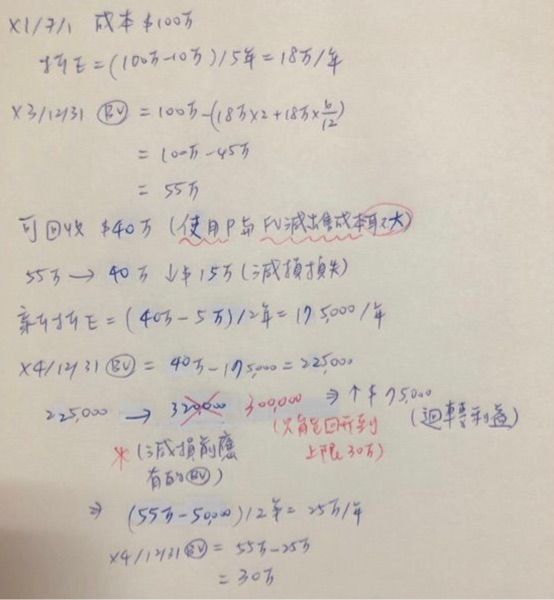 X1/7/1 成本 $100万
折旧=(100万-10万)/5年=18万/年
X3/12/31 BV =100万-(18万×2+18万×6/12)
=100万-45万
=55万
可回收 $40万 (使用P与FV減出售成本取大)
55万→40万 ↓$15万(減損損失)
新折旧=(40万-5万)/2年=175,000/年
X4/12/31 BV = 40万-175,000=225,000
225,000 → 320,000 300,000 ⇒ ↑$75,000
(只能回升到 (迴轉利益)
* (減損前應 上限30万)
有的BV)
⇒ (55万-50,000)/2年=25万/年
X4/12/31 BV = 55万-25万
=30万